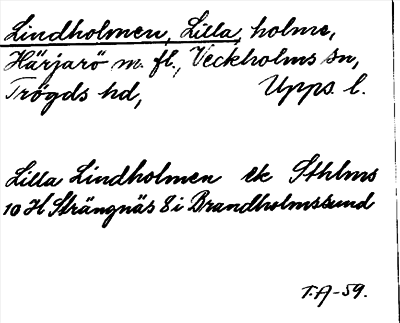 Lindholmen, Lilla, holme,
Härjarö m. fl., Veckholms sn,
Trögds hd, Upps. l.
Lilla Lindholmen ek Sthlms
10 H Strängnäs 8 i Brandholmssund
T.A-59.